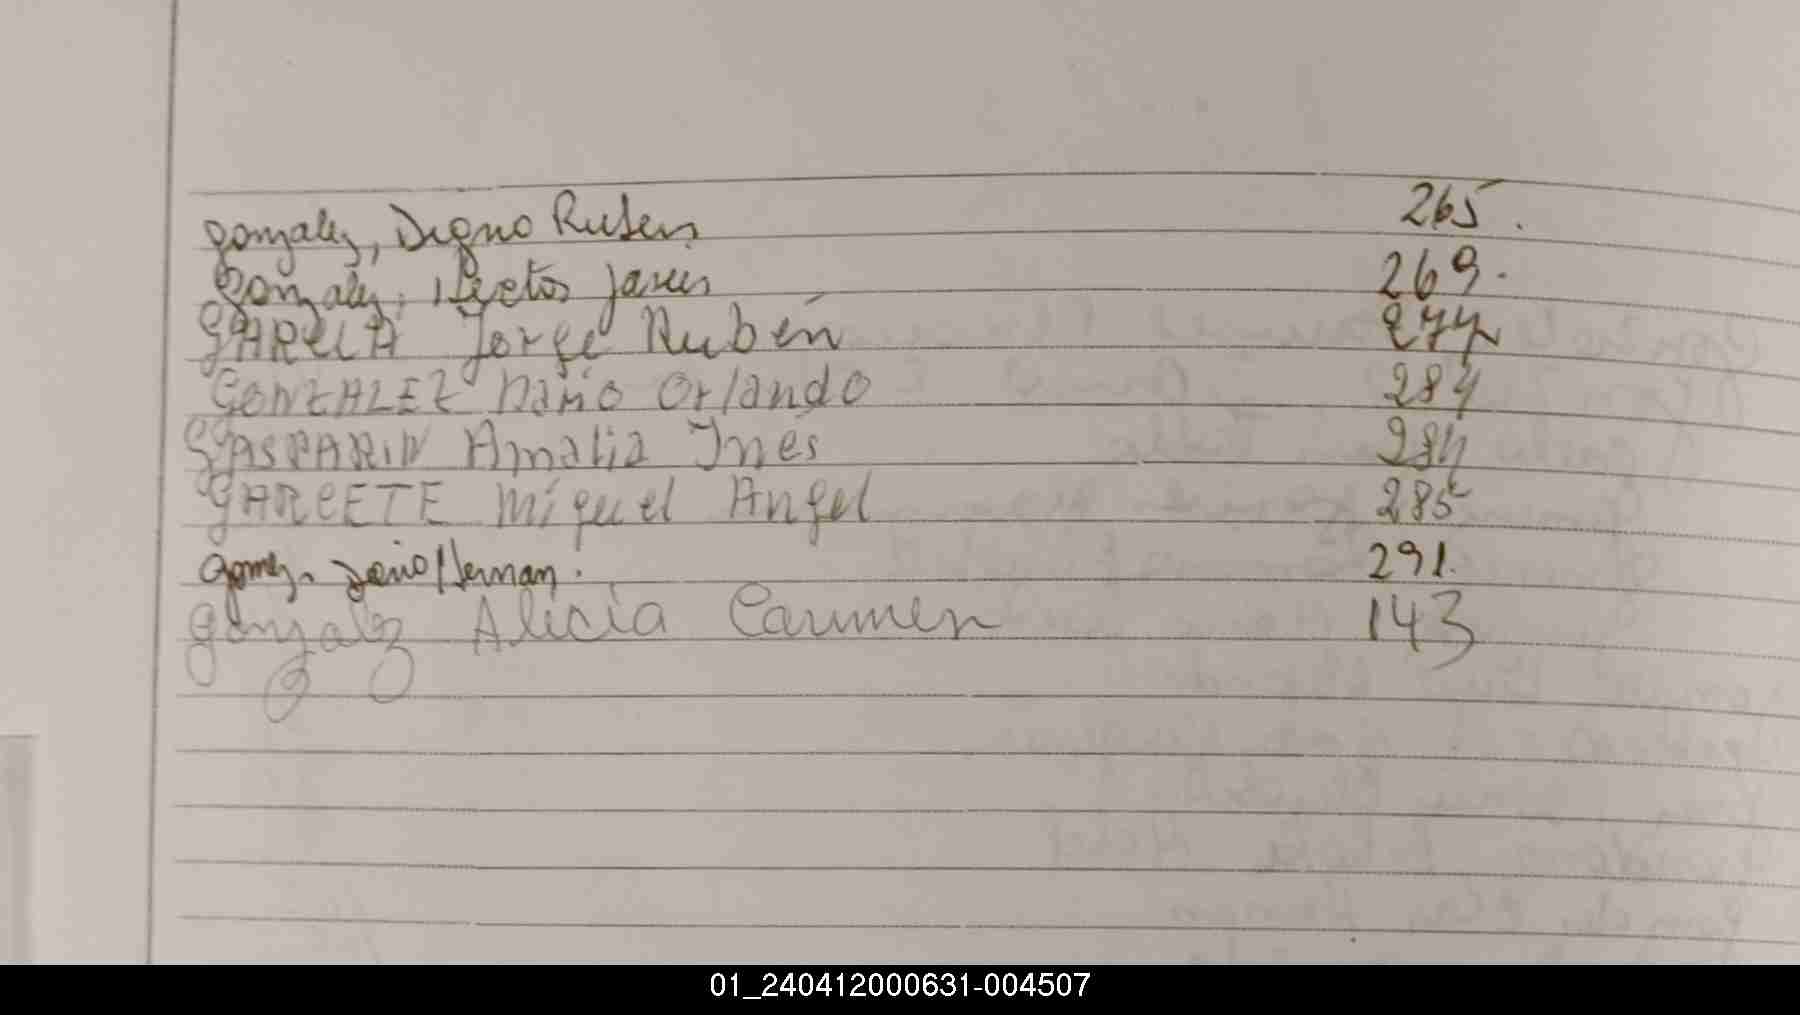 Gonzalez, Digno Ruben 265.
Gonzalez, Hector Javier 269.
GARCIA Jorge Rubén 277
GONZALEZ Dario Orlando 284
GASPARIN Amalia Ines 284
GARCETE Miguel Angel 285
Gomez, Dario Hernan. 291.
Gonzalez Alicia Carmen 143
01_240412000631-004507